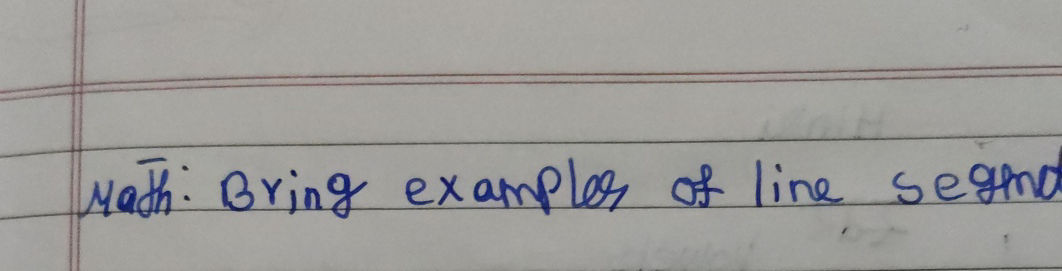 Math: Bring examples of line segmd